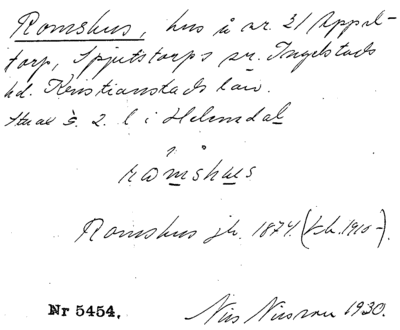 Romshus, hus å nr. 21 Appel-
torp, Spjutstorps sn. Ingelstads
hd. Kristianstads län.
s. 2. l i Helmdal
råmshus
Romshus jb. 1874. (kb. 1910-).
Nr 5454. Nils Nilsson 1930.